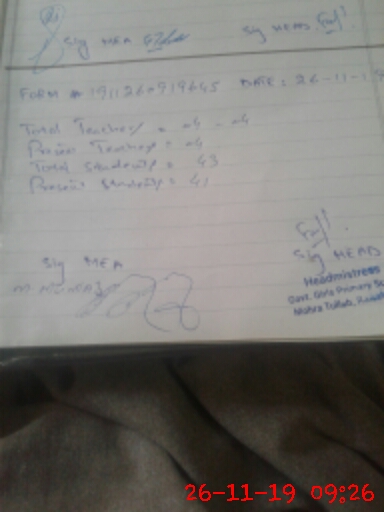 Sig MEA Sig HEAD
FORM # 1911260919645 DATE: 26-11-1
Total Teachers = 04 - 04
Presen Teachers = 04
Total Students = 43
Presen Students = 41
Sig MEA Sig HEAD
Headmistress
Govt. Girls Primary
Mohra
26-11-19 09:26